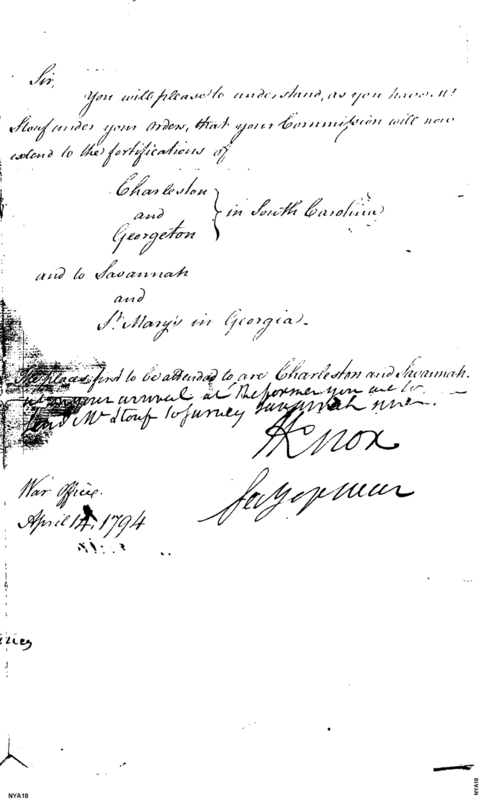 Sir,
You will please to understand, as you have Mr
Stouf under your orders, that your Commission will now
extend to the fortifications of
Charleston
and } in South Carolina
Georgeton
and to Savannah
and
St. Mary's in Georgia.
The places first to be attended to are Charleston and Savannah.
upon your arrival at the former you are to
send Mr Stouf to survey Savannah river
HKnox
Secy of war
War office.
April 14, 1794
NYA18
NYA18